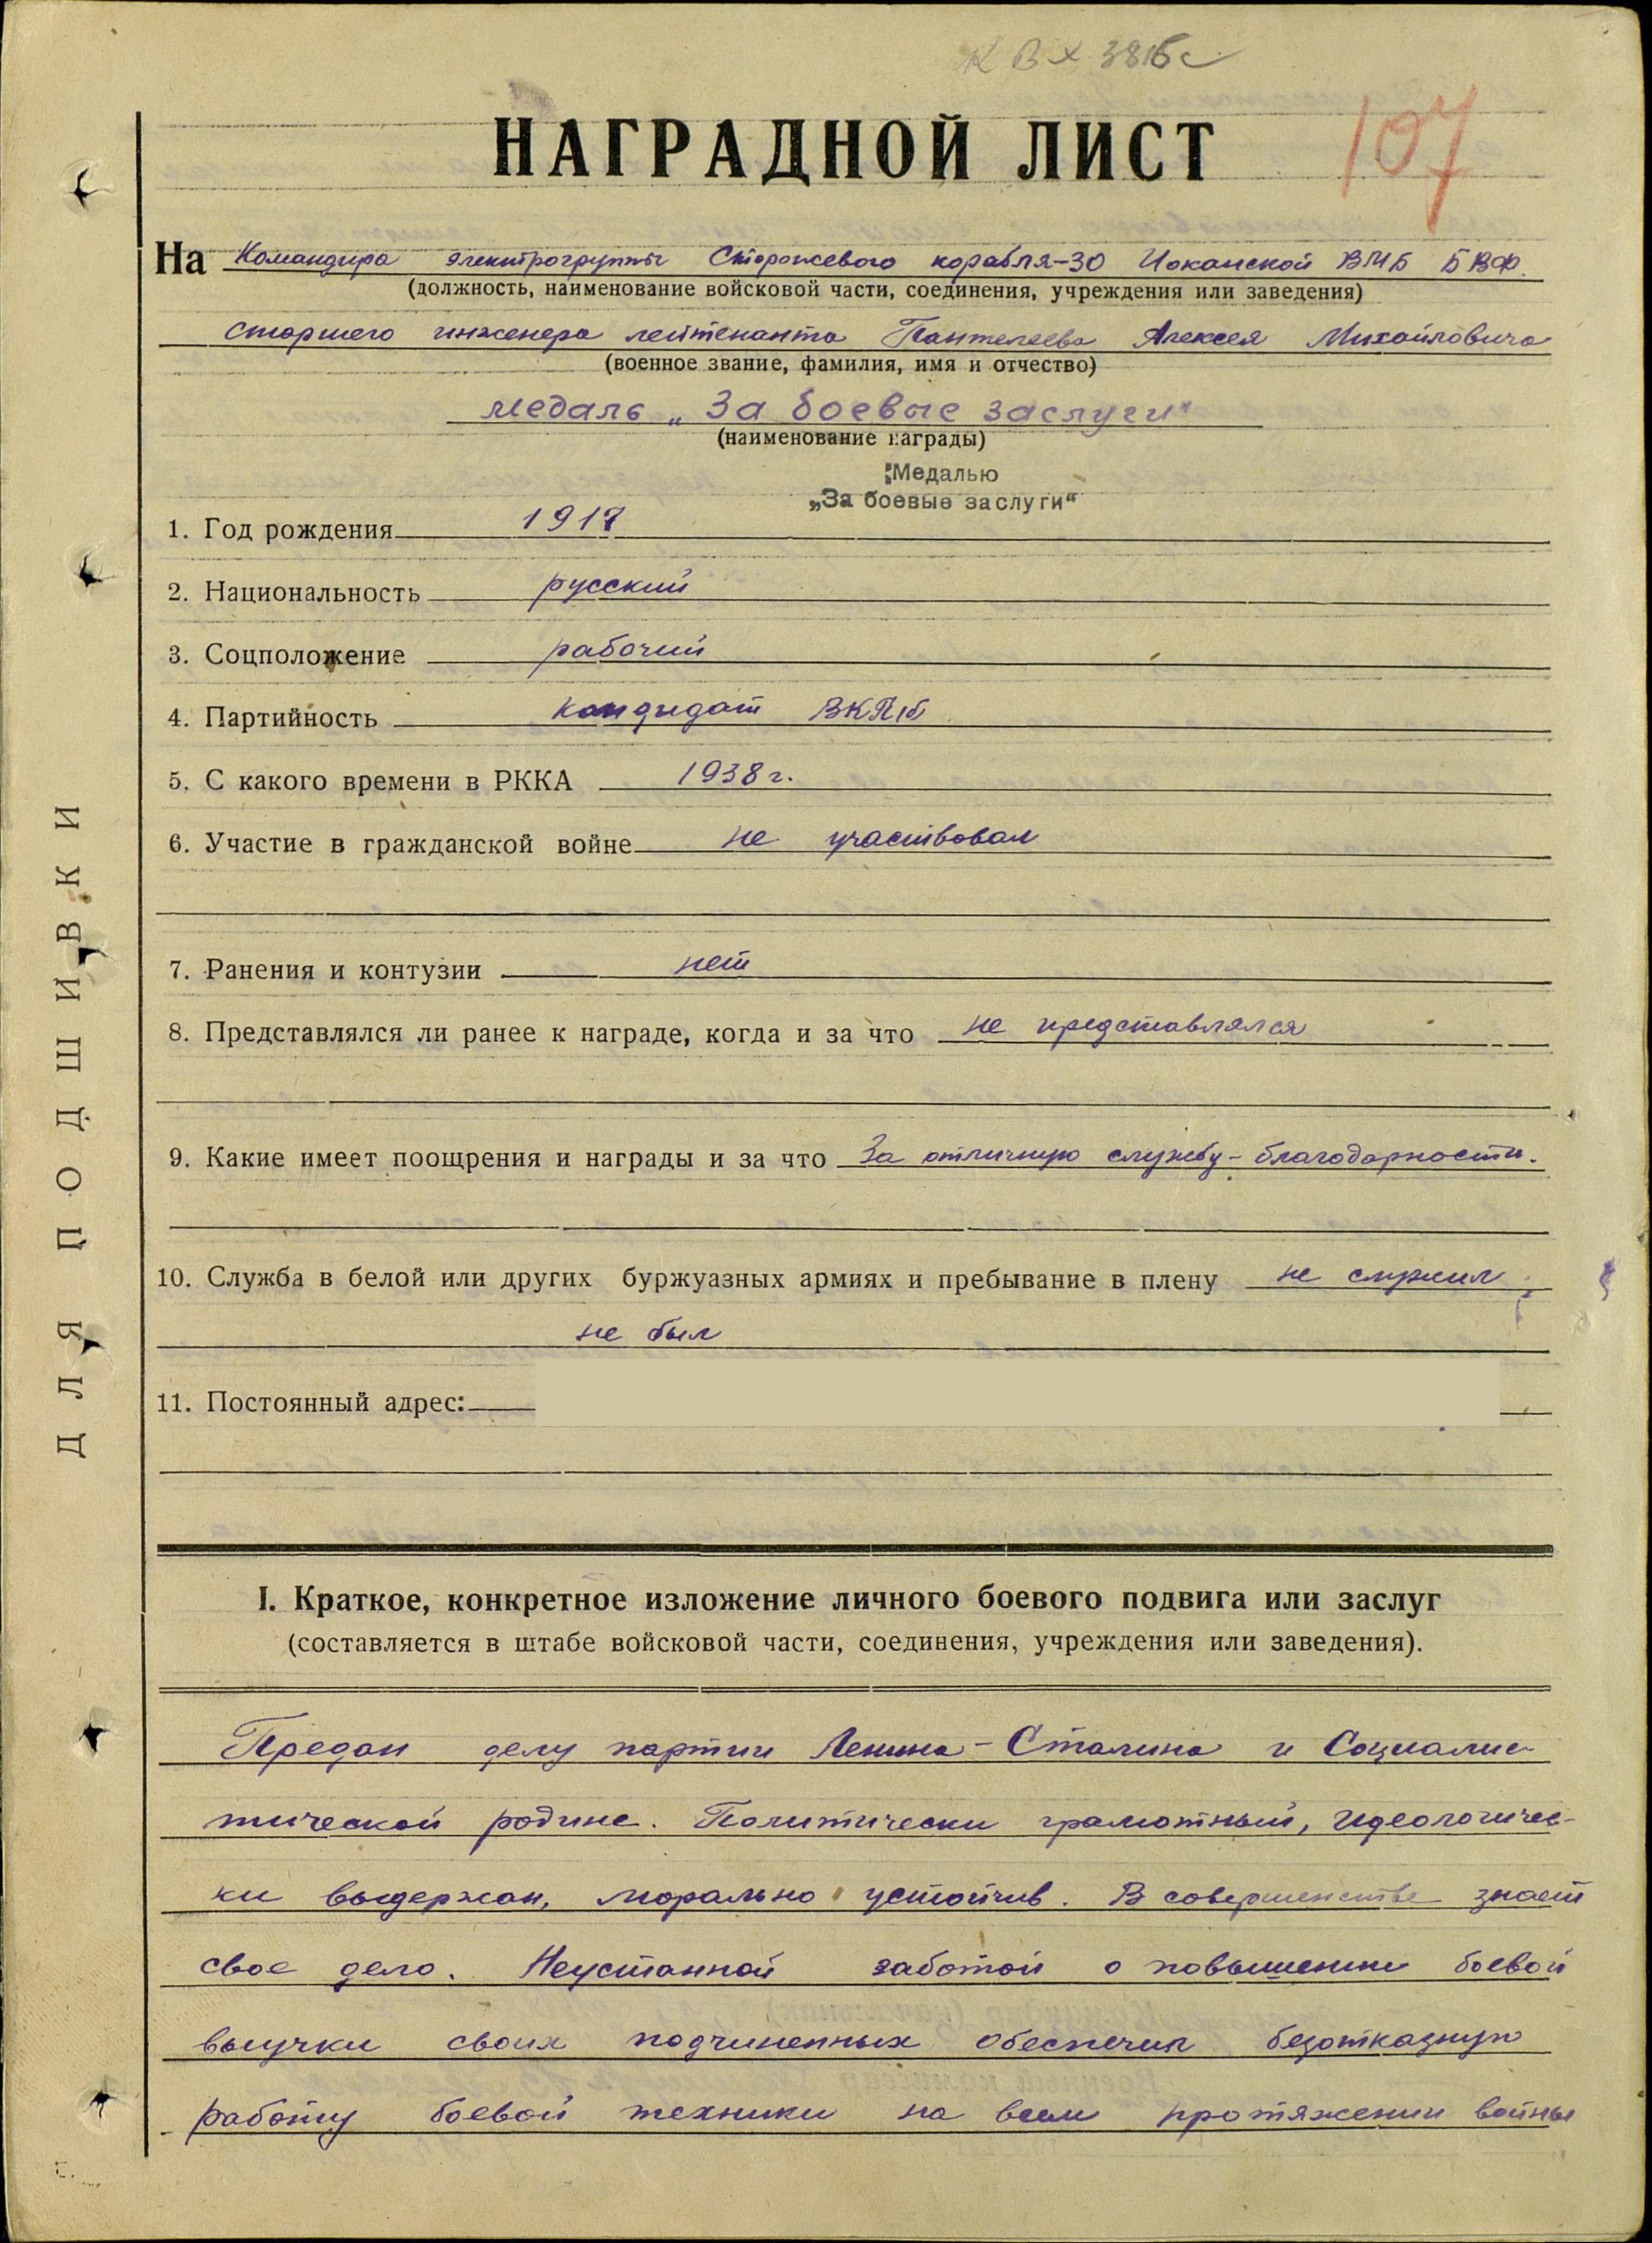 К ВХ 3816с
107
НАГРАДНОЙ ЛИСТ
На Командира электрогруппы Сторожевого корабля-30 Иоканской ВМБ БВФ.
(должность, наименование войсковой части, соединения, учреждения или заведения)
старшего инженера лейтенанта Пантелеева Алексея Михайловича
(военное звание, фамилия, имя и отчество)
медаль „За боевые заслуги"
(наименование награды)
Медалью
„За боевые заслуги"
1. Год рождения 1917
2. Национальность русский
3. Соцположение рабочий
4. Партийность кандидат ВКП/б
5. С какого времени в РККА 1938 г.
6. Участие в гражданской войне не участвовал
7. Ранения и контузии нет
8. Представлялся ли ранее к награде, когда и за что не представлялся
9. Какие имеет поощрения и награды и за что За отличную службу - благодарности.
10. Служба в белой или других буржуазных армиях и пребывание в плену не служил;
не был
11. Постоянный адрес:
I. Краткое, конкретное изложение личного боевого подвига или заслуг
(составляется в штабе войсковой части, соединения, учреждения или заведения).
Предан делу партии Ленина-Сталина и Социалис-
тической родине. Политически грамотный, идеологичес-
ки выдержан, морально устойчив. В совершенстве знает
свое дело. Неустанной заботой о повышении боевой
выучки своих подчиненных обеспечил безотказную
работу боевой техники на всем протяжении войны
ДЛЯ ПОДШИВКИ